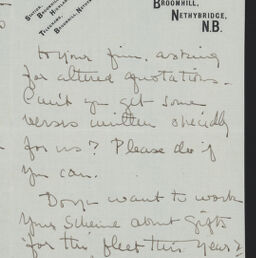 BROOMHILL,
NETHYBRIDGE,
N.B.
to your firm, asking
for altered quotations.
Can't you get some
verses written specially
for us? Please do if
you can.
Do you want to work
your scheme about gifts
for the fleet this year?